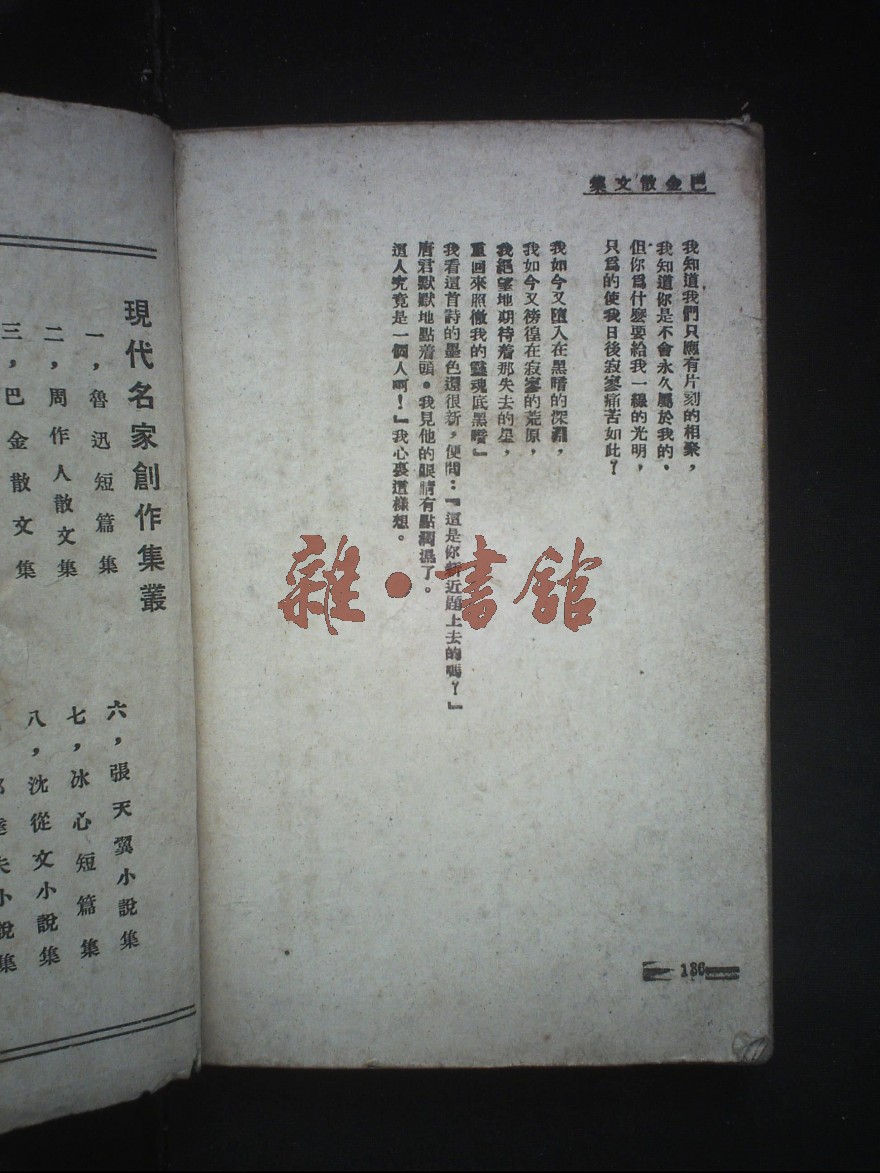 巴金散文集
我知道我們只應有片刻的相聚，
我知道你是不會永久屬於我的．
但你爲什麼要給我一線的光明，
只爲的使我日後寂寥痛苦如此？
我如今又墮入在黑暗的深淵，
我如今又徬徨在寂寥的荒原，
我絕望地期待着那失去的星，
重回來照徹我的靈魂底黑暗』
我看這首詩的墨色還很新，便問：『這是你新近題上去的嗎？』
唐君默默地點着頭。我見他的眼睛有點潤濕了。
這人究竟是一個人啊！』我心裏這樣想。
186
現代名家創作集叢
一，魯迅短篇集
二，周作人散文集
三，巴金散文集
六，張天翼小說集
七，冰心短篇集
八，沈從文小說集
達夫小說集
雜·書館